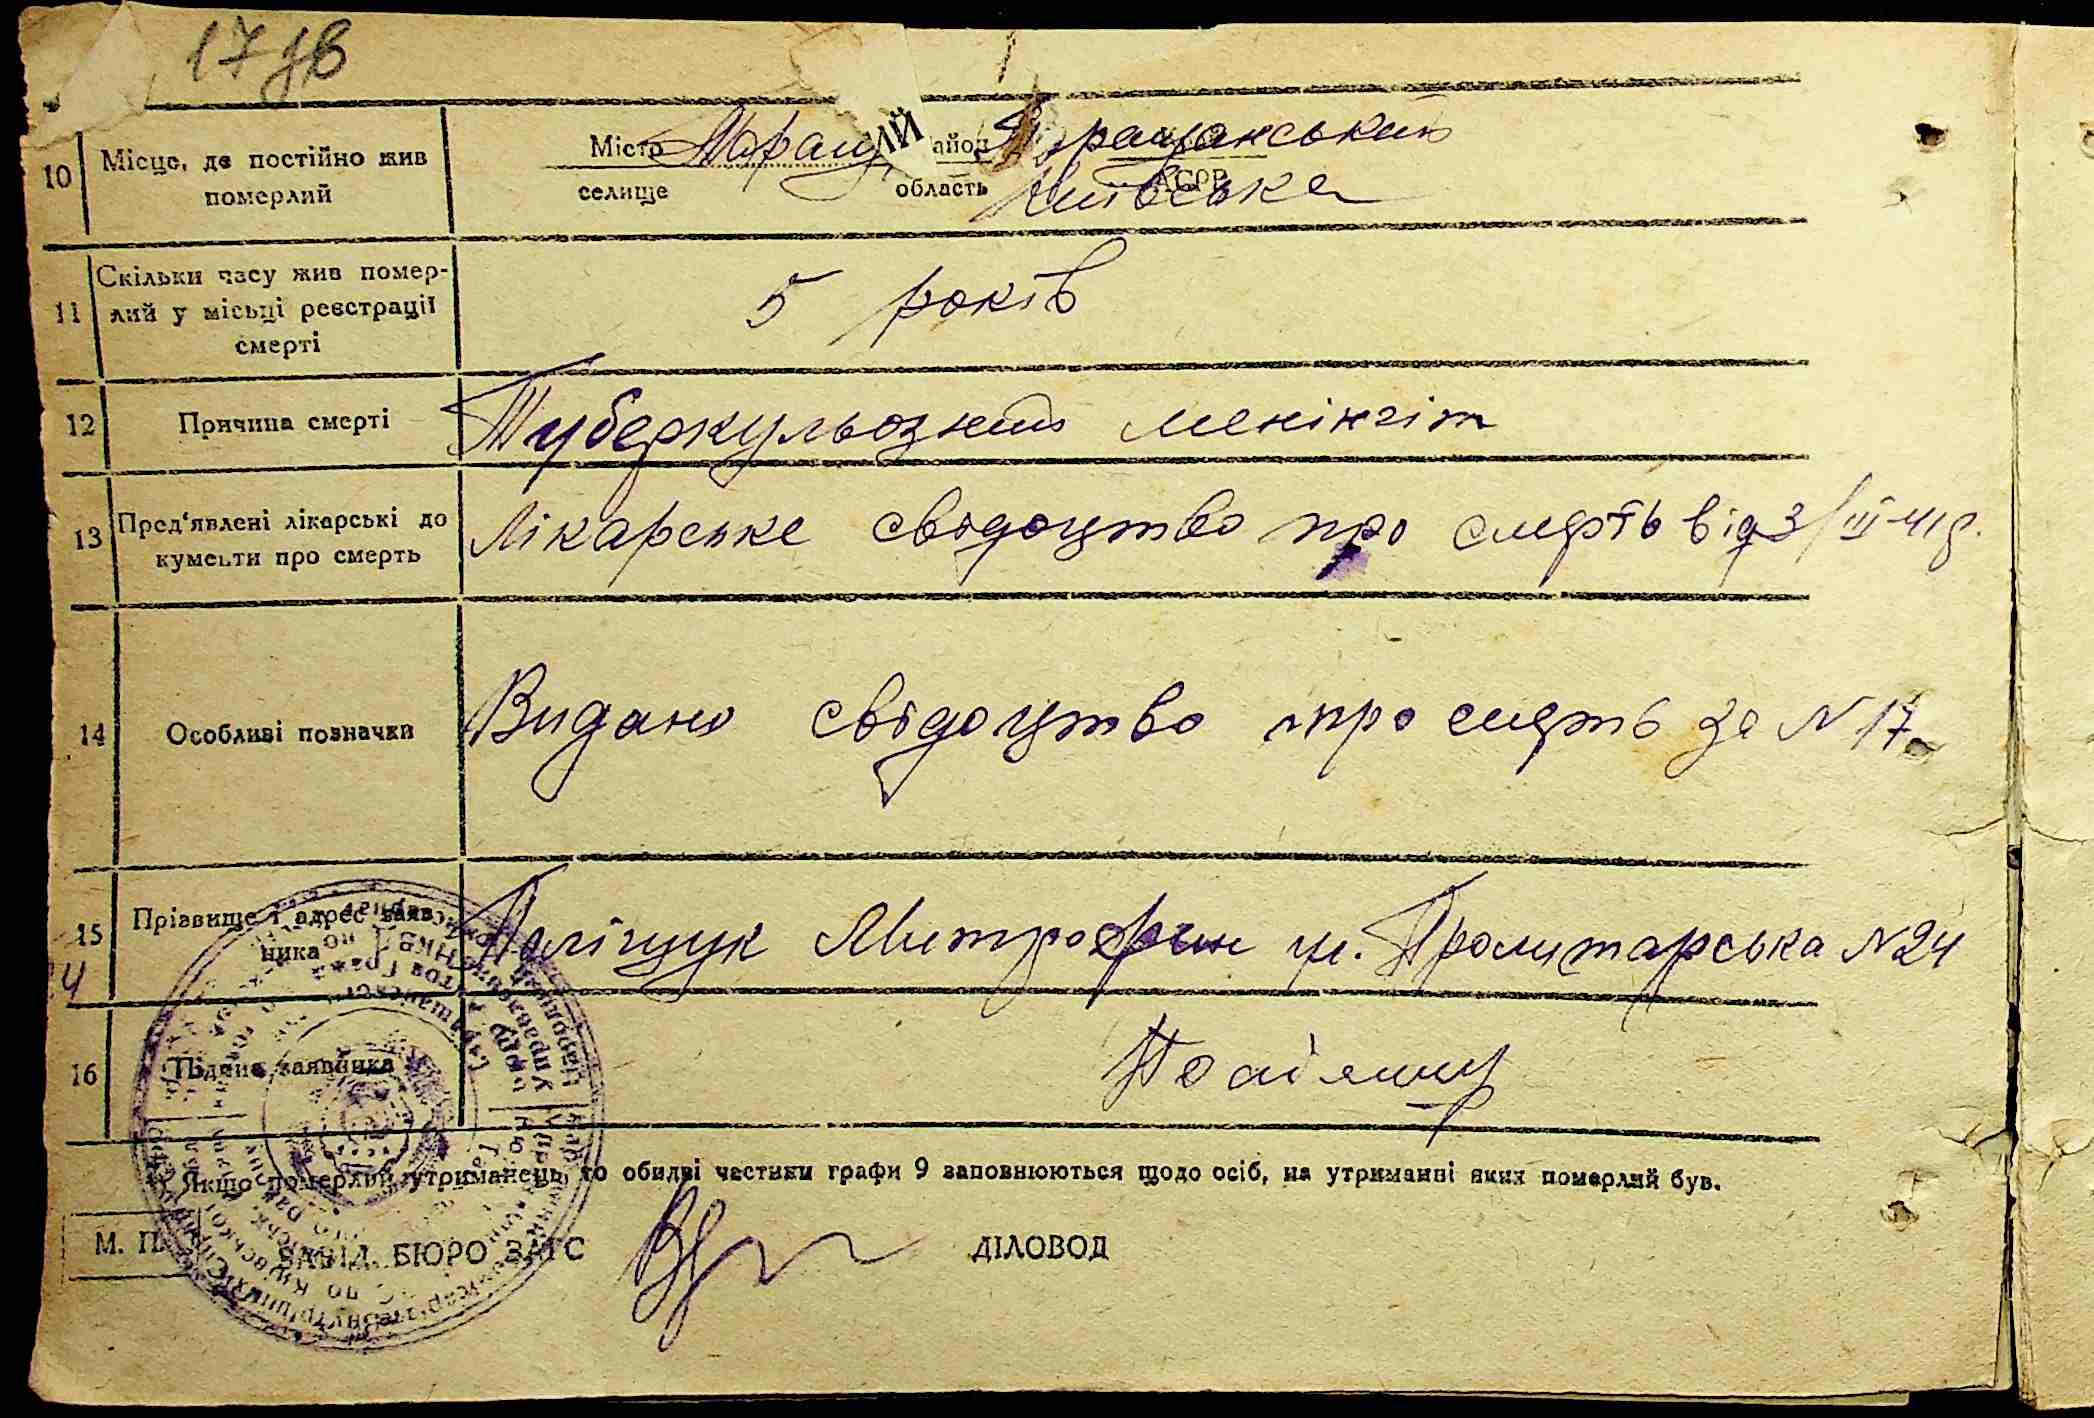 17 зв
10 Місце, де постійно жив
померлий
Місто район Таращанський
селище область Київська АСРР
11 Скільки часу жив помер-
лий у місьці реєстрації
смерті
5 років
12 Причина смерті Туберкульозний менінгіт
13 Пред'явлені лікарські до
кументи про смерть
Лікарське свідоцтво про смерть від 3/III-41р.
14 Особливі позначки Видано свідоцтво про смерть за N 17
15 Прізвище і адрес заяв
ника
Поліщук Митрофан ул. Пролитарська N 24
16 Підпис заявника
Якщо померлий утриманець, то обидві частини графи 9 заповнюються щодо осіб, на утриманні яких померлий був.
М. П. ЗАВІД. БЮРО ЗАГС ДІЛОВОД